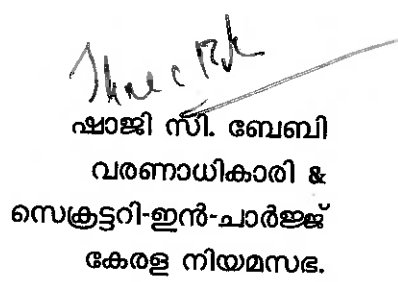 ഷാജി സി. ബേബി
വരണാധികാരി &
സെക്രട്ടറി-ഇൻ-ചാർജ്ജ്
കേരള നിയമസഭ.